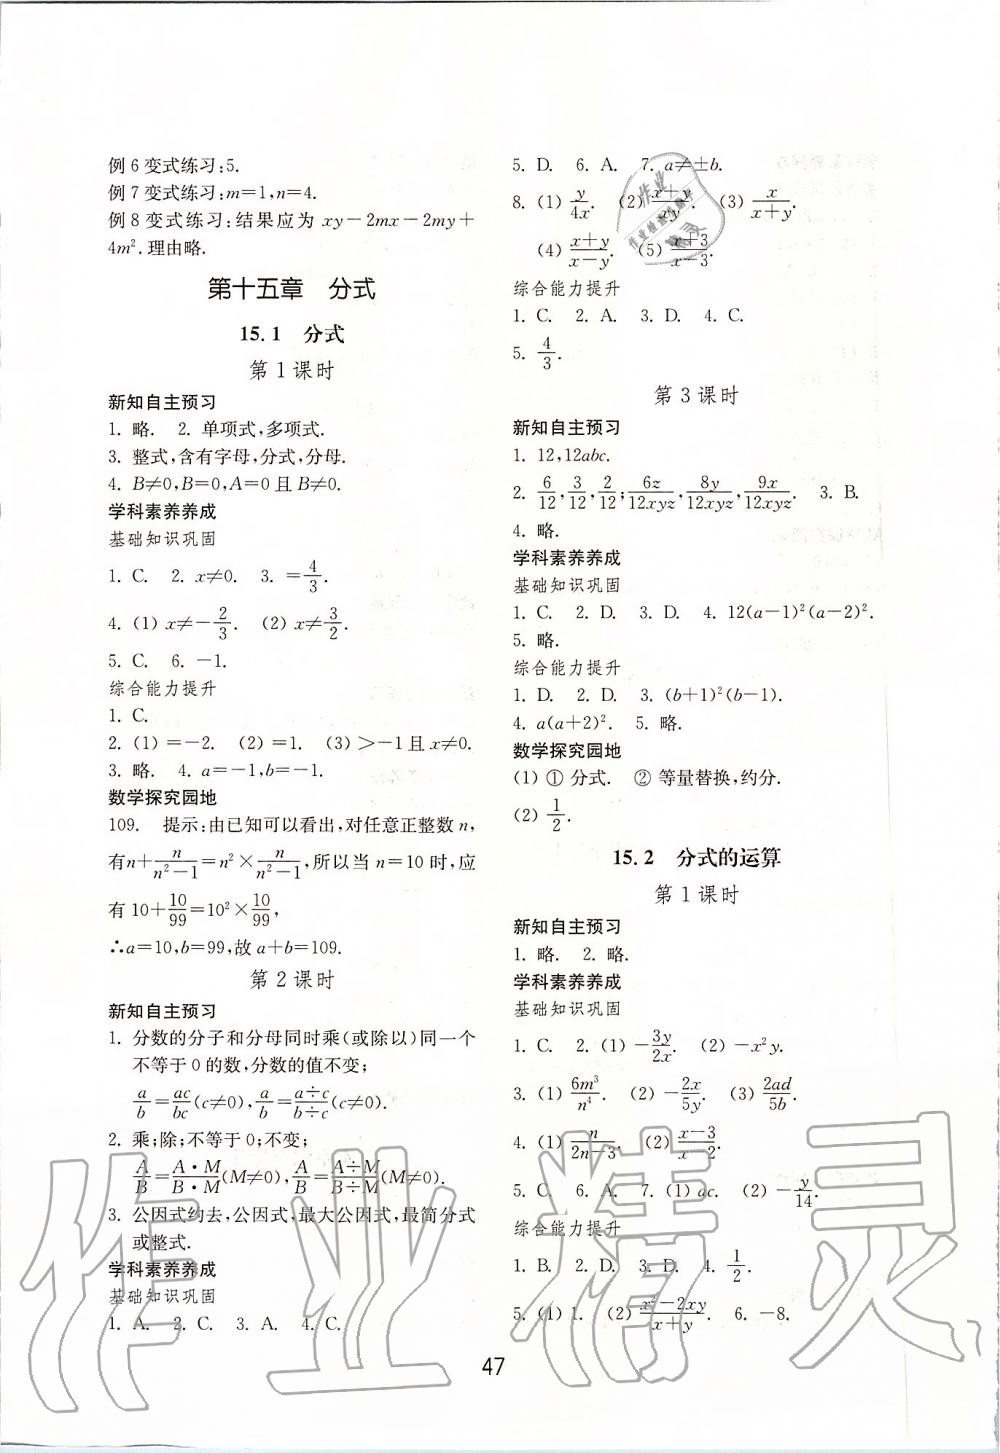 例6变式练习:5.
例7变式练习:m=1,n=4.
例8变式练习:结果应为 xy-2mx-2my+
4m².理由略.
第十五章 分式
15.1 分式
第1课时
新知自主预习
1. 略. 2. 单项式,多项式.
3. 整式,含有字母,分式,分母.
4. B≠0,B=0,A=0且B≠0.
学科素养养成
基础知识巩固
1. C. 2. x≠0. 3. =4/3.
4. (1) x≠-2/3. (2) x≠3/2.
5. C. 6. -1.
综合能力提升
1. C.
2. (1) =-2. (2) =1. (3) >-1且x≠0.
3. 略. 4. a=-1,b=-1.
数学探究园地
109. 提示:由已知可以看出,对任意正整数n,
有n+n/(n²-1)=n²×n/(n²-1),所以当n=10时,应
有10+10/99=10²×10/99,
∴a=10,b=99,故a+b=109.
第2课时
新知自主预习
1. 分数的分子和分母同时乘(或除以)同一个
不等于0的数,分数的值不变;
a/b=ac/bc(c≠0),a/b=(a÷c)/(b÷c)(c≠0).
2. 乘;除;不等于0;不变;
A/B=(A·M)/(B·M)(M≠0),A/B=(A÷M)/(B÷M)(M≠0).
3. 公因式约去,公因式,最大公因式,最简分式
或整式.
学科素养养成
基础知识巩固
1. A. 2. C. 3. A. 4. C.
5. D. 6. A. 7. a≠±b.
8. (1) y/4x. (2) (x+y)/xy. (3) x/(x+y).
(4) (x+y)/(x-y). (5) (x+3)/(x-3).
综合能力提升
1. C. 2. A. 3. D. 4. C.
5. 4/3.
第3课时
新知自主预习
1. 12,12abc.
2. 6/12,3/12,2/12;6z/12xyz,8y/12xyz,9x/12xyz. 3. B.
4. 略.
学科素养养成
基础知识巩固
1. C. 2. D. 3. D. 4. 12(a-1)²(a-2)².
5. 略.
综合能力提升
1. D. 2. D. 3. (b+1)²(b-1).
4. a(a+2)². 5. 略.
数学探究园地
(1) ① 分式. ② 等量替换,约分.
(2) 1/2.
15.2 分式的运算
第1课时
新知自主预习
1. 略. 2. 略.
学科素养养成
基础知识巩固
1. C. 2. (1) -3y/2x. (2) -x²y.
3. (1) 6m³/n⁴. (2) -2x/5y. (3) 2ad/5b.
4. (1) n/(2n-3). (2) (x-3)/(x-2).
5. C. 6. A. 7. (1) ac. (2) -y/14.
综合能力提升
1. B. 2. D. 3. D. 4. 1/2.
5. (1) 1. (2) (x²-2xy)/(x+y). 6. -8.
47
作业精灵